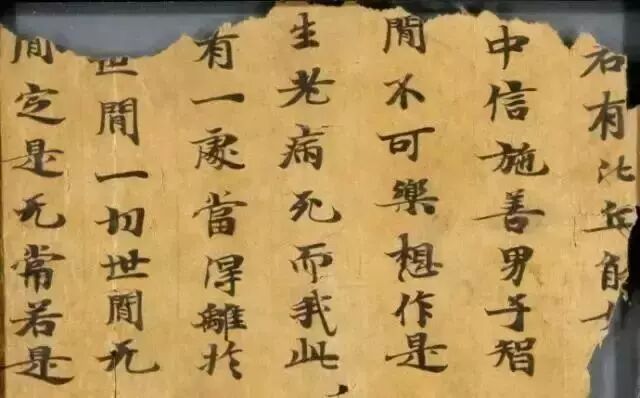 若有比丘能
中信施善男子智
間不可樂想作是
生老病死而我此
有一處當得離於
世間一切世間无
間定是无常若是